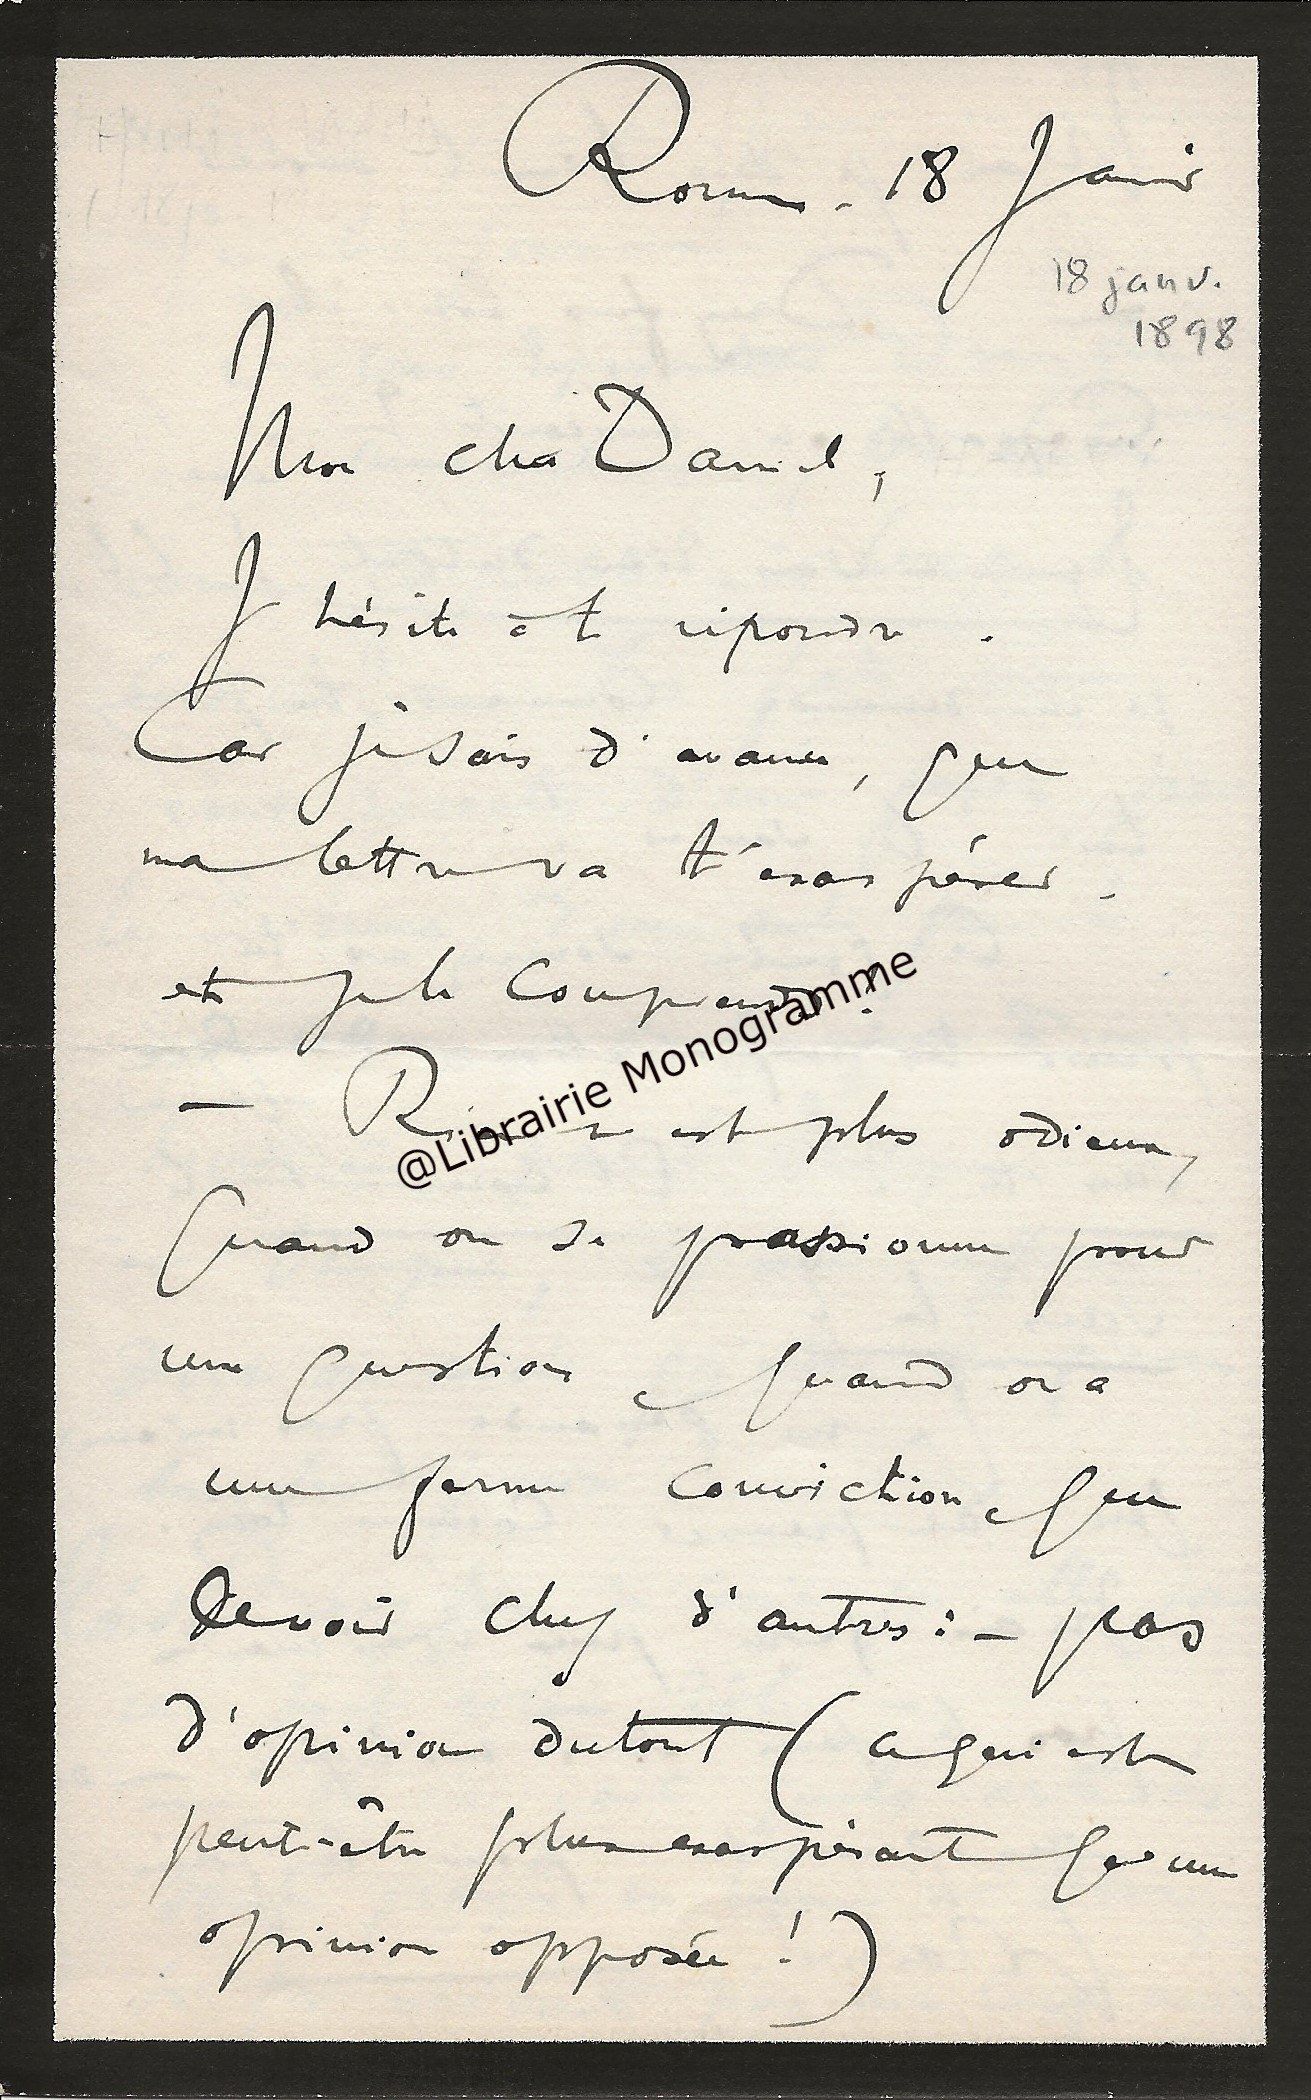 Rome. 18 Janv
18 janv.
1898
Mon cher Daniel,
J'hésite à te répondre.
Car je sais d'avance, que
ma lettre va t'exaspérer.
et je le comprends !
@Librairie Monogramme
— Rien n'est plus odieux,
Quand on se passionne pour
une question, quand on a
une ferme conviction, que
de voir chez d'autres : — pas
d'opinion du tout (ce qui est
peut-être plus exaspérant qu'une
opinion opposée !)